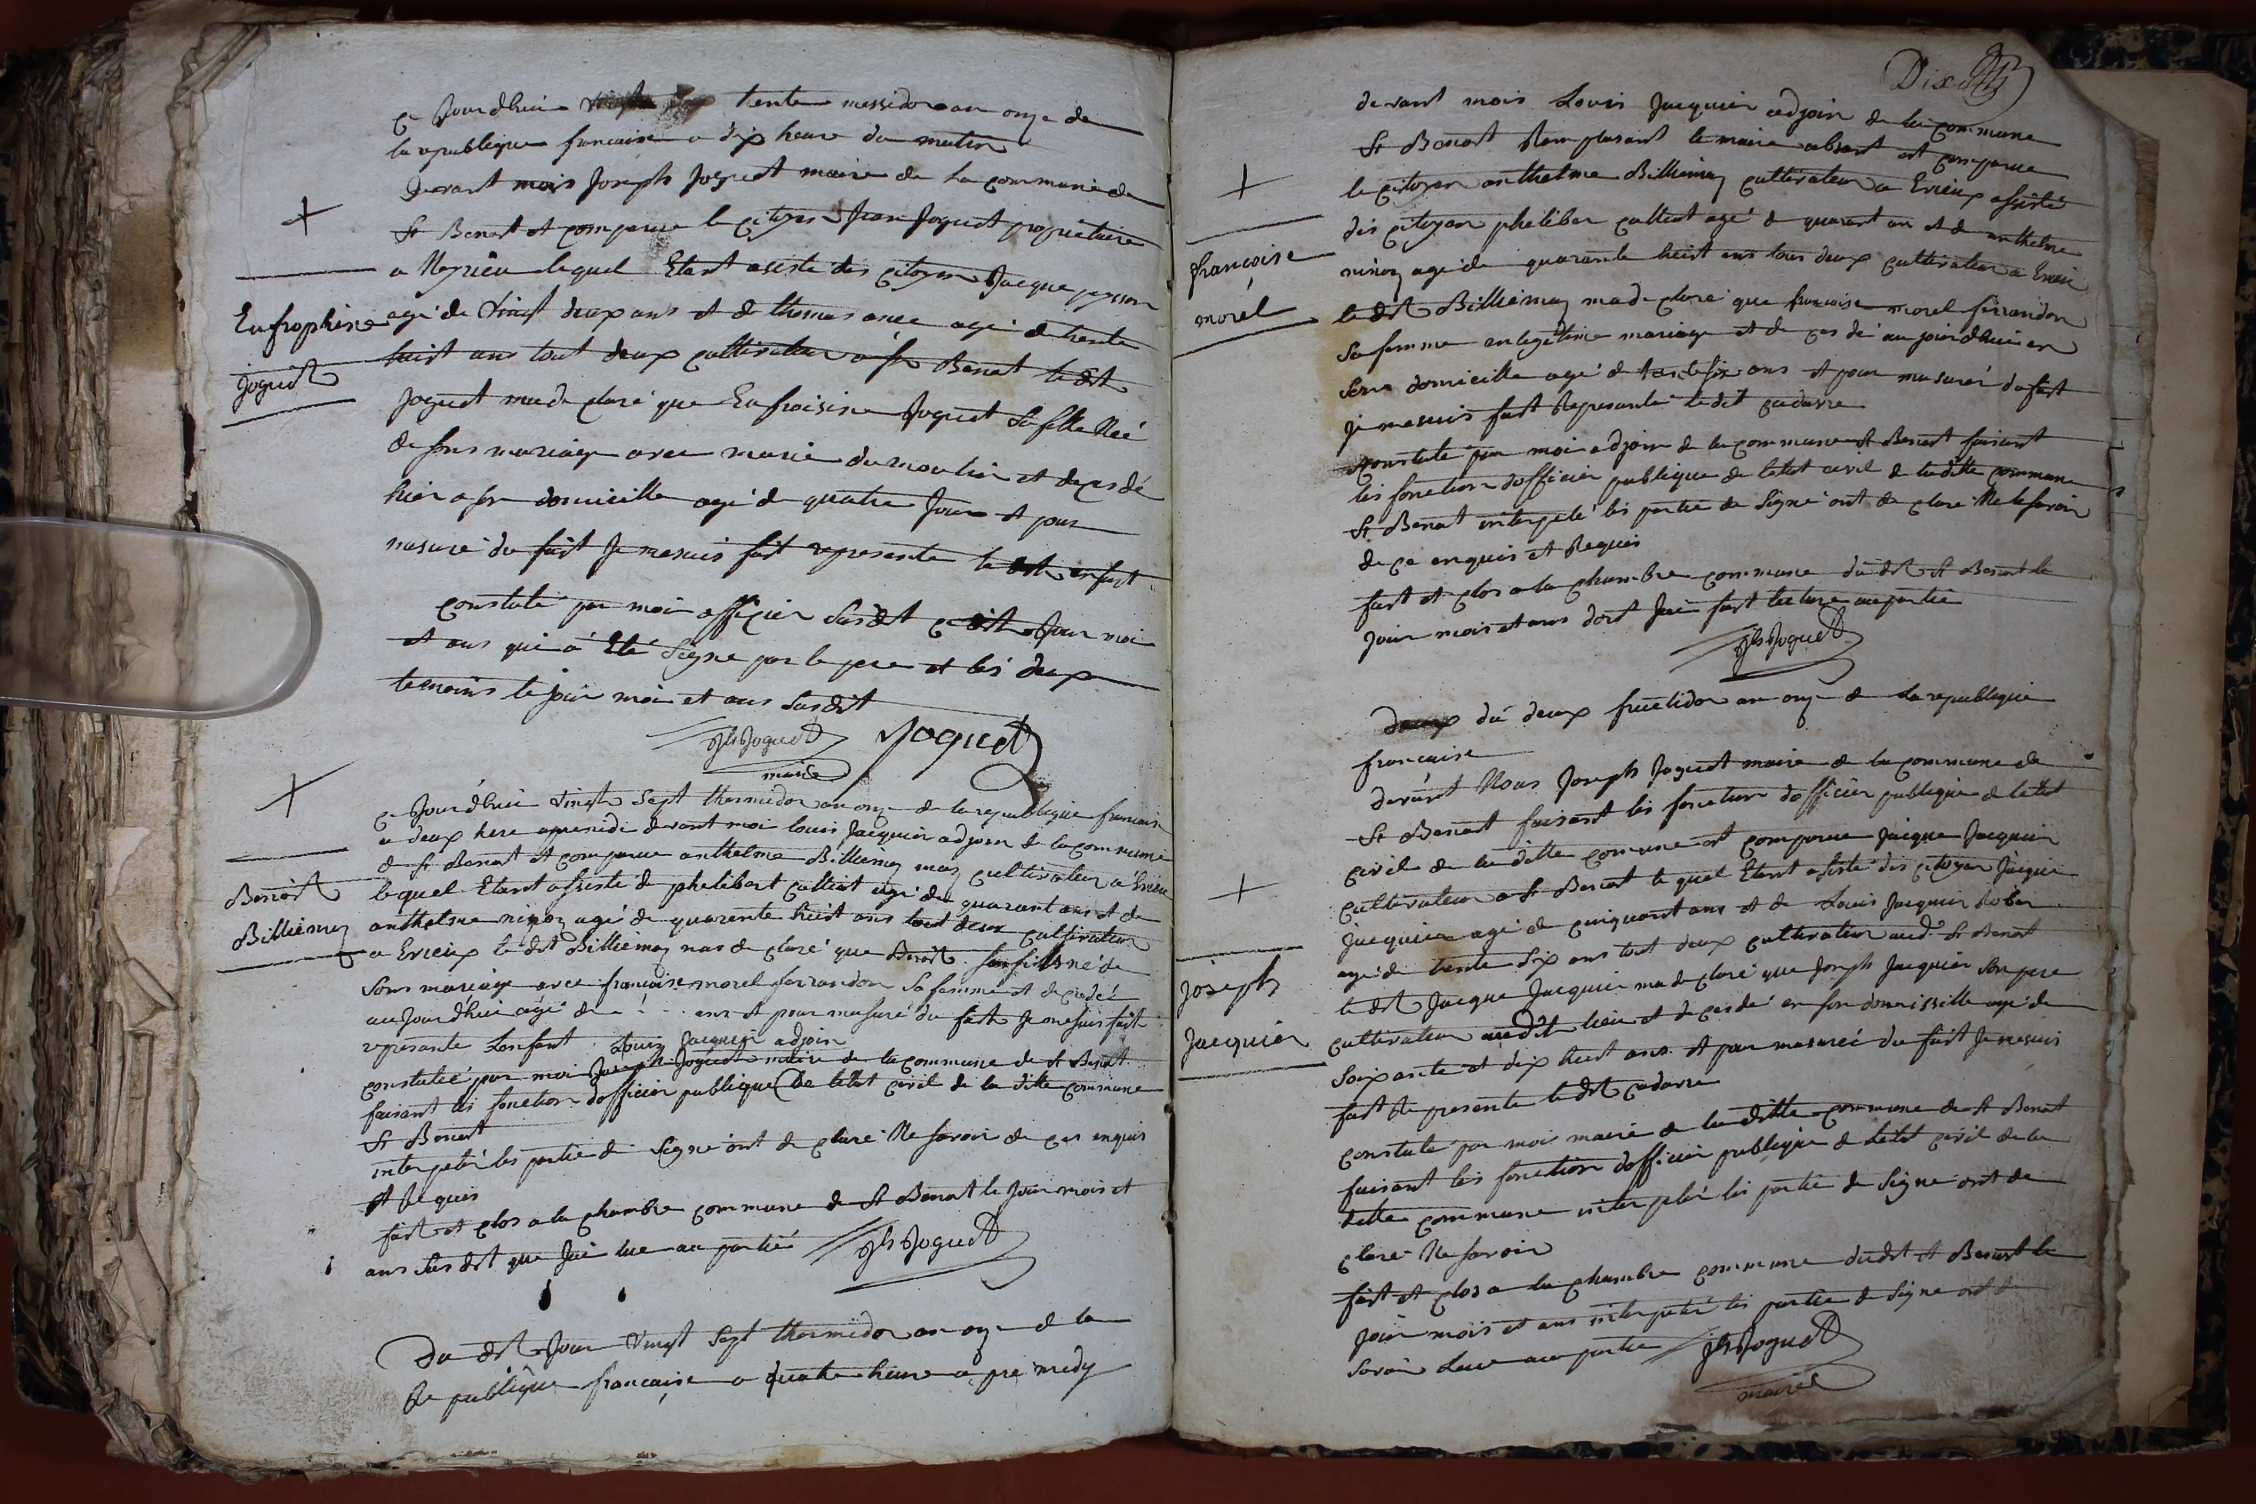 ce Jourdhuie trente messidor an onze de
la republique francaise a dix heure du matin
Devant mois Joseph Joguet maire de la commune de
St Benoit et comparue le citoyen Jean Joguet propriétaire
a Neyrieu lequel Etant asisté des citoyen Jacque
agé de vingt deux ans et de thomas agé de trente
huist ans tout deux cultivateur a St Benoit le dit
Joguet ma de claré que Eufroisine Joguet sa fille Neé
de sons mariage avec marie dumoulin et decedé
hier a son domicille agé de quatre Jour et pour
masuré du fait Je mesuis fait represente le dit enfant
constaté par moi officier susdit ce dit Jour moi
et ans qui à Eté Signe par le pere et les deux
temoins le jour moi et ans susdit
Jh Joguet Joguet
maire
Eufrophine
Joguet
ce Jourdhuie vingt Sept thermidor an onze de la republique francaise
a deux here apresmidi devant moi louis Jacquier adjoin de la commune
de St Benoit et comparue anthelme Billiemaz cultivateur a Evieu
lequel Etant assisté de phelibert culliat agé de quarant ans et de
anthelme ninoz agé de quarente huist ans tout deux cultivateur
a Evieux le dit Billiemaz mas de claré que Benoit son fils né de
Sons mariage avec francoise morel ferrandon sa femme et decedeé
au Jourdhuie agé de ans et pour masuré du fait Je mesuis fait
represante Lenfant Louis Jacquier adjoin
constateé par moi Joseph Joguet maire de la commune de St Benoit
faisant les fonction dofficier publique De letat civil de la ditte commune
St Benoit
interpelé les partie de Signe ont de claré Ne savoir de ces enquis
et Requis
fait et clos a la chambre commune de St Benoit le Jour mois et
ans susdit que Jai lue au partié Jh Joguet
Benoit
Billiemaz
Du dit Jour vingt Sept thermidor an onze de la
Republique francaise a quatre heure a pre midy
devant mois Louis Jacquier adjoin de la commune
St Benoit Remplasant le maire absant est comparue
le citoyen anthelme Billiemaz cultivateur a Evieux assisté
dés citoyen pheliber culliat agé de quarant an et de anthelme
ninoz agé de quarante huist ans tous deux cultivateur a Evieu
le dit Billiemaz ma de claré que francoise morel ferrandon
Sa femme en legitime mariage et de ces dé au jourdhuie en
Sons domicille agé de ans et pour masuré du fait
je mesuis fait Represanté ledit cadavre
constaté par moi adjoin de la commune St Benoit faisant
les fonction dofficier publique de letat civil de laditte commune
St Benoit interpelé les partie de Signé ont de clare Ne le savoir
de ce enquis et Requis
fait et clos a la chambre commune du dit St Benoit le
Jour mois et ans dont Jai fait lecture au partie
Jh Joguet
francoise
morel
du deux fructidor an onze de la republique
francaise
devant Nous Joseph Joguet maire de la commune de
St Benoit faisant les fonction dofficier publique de letat
civil de la ditte comune est comparue Jacque Jacquier
cultivateur a St Benoit le quel Etant asisté des citoyen Jacque
Jacquier agé de cinquant ans et de Louis Jacquier
agé de trente Six ans tout deux cultivateur aud St Benoit
le dit Jacque Jacquier ma de claré que Joseph Jacquier son pere
cultivateur audit lieu et de cesdé en son domissille agé de
Soixante et dix huit ans et pour masureé du fait Je mesuis
fait Represente le dit cadavre
constaté par mois maire de la ditte commune de St Benoit
faisant les fonction dofficier publique de letat civil de la
ditte commune interpelé les partie de Signe ont de
clare Ne savoir
fait et clos a la chambre commune dudit St Benoit le
Jour mois et ans interpelé les partie de Signe ont
Savoir Leue au partie Jh Joguet
maire
Joseph
Jacquier